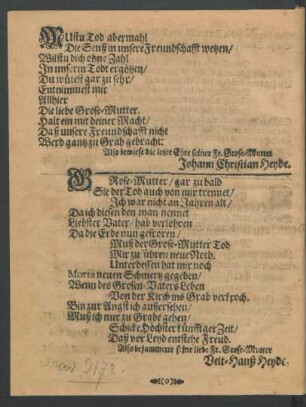 MUstu Tod abermahl
Die Senß in unsere Freundschafft wetzen/
Wilstu dich ohne Zahl
In unserm Todt ergötzen/
Du wütest gar zu sehr/
Entnimmest mir
Allhier
Die liebe Grose-Mutter.
Halt ein mit deiner Macht/
Daß unsere Freundschafft nicht
Werd gantz zu Grab gebracht:
Also bewiese die letzte Ehre seiner Fr. Grose-Mutter
Johann Christian Heyde.
GRose-Mutter/ gar zu bald
Sie der Tod auch von mir trennet/
Ich war nicht an Jahren alt/
Da ich diesen den man nennet
Liebster Vater/ hab verlohren
Da die Erde nun gefroren/
Muß der Grose-Mutter Tod
Mir zu führen neue Noth.
Unterdessen hat mir noch
Morta neuen Schmertz gegeben/
Wenn des Grosen-Vaters Leben
Von der Kirch ins Grab verkroch.
Bin zur Angst ich außersehen/
Muß ich nur zu Grabe gehen/
Schicke Höchster künfftger Zeit/
Daß vor Leyd entstehe Freud.
Also bejammerte seine liebe Fr. Grose-Mutter
Veit-Hanß Heyde.